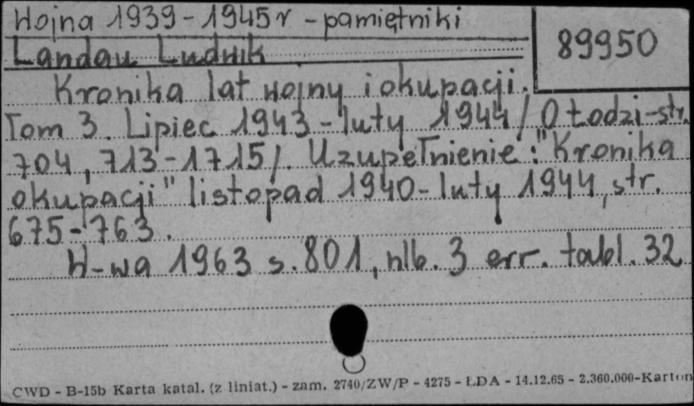 Wojna 1939-1945r - pamiętniki
89950
Landau Ludwik
Kronika lat wojny i okupacji.
Tom 3. Lipiec 1943-luty 1944 /O Łodzi-str.
704, 713-1715/. Uzupełnienie: "Kronika
okupacji" listopad 1940-luty 1944, str.
675-763.
W-wa 1963 s. 801, nlb. 3 err. tabl. 32
CWD - B-15b Karta katal. (z liniat.) - zam. 2740/ZW/P - 4275 - ŁDA - 14.12.65 - 2.360.000-Karton